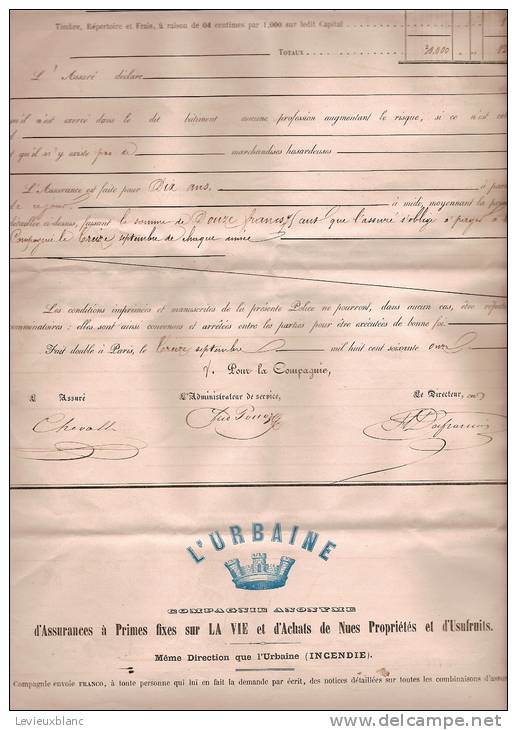 Timbre, Répertoire et Frais, à raison de 04 centimes par 1,000 sur ledit Capital
TOTAUX 30,000
L'Assuré déclare
qu'il n'est exercé dans le dit bâtiment aucune profession augmentant le risque, si ce n'est
et qu'il n'y existe pas de marchandises hasardeuses
L'Assurance est faite pour Dix ans,
de ce jour à midi, moyennant la
détaillée ci-dessus, faisant la somme de Douze francs que l'assuré s'oblige à payer à
Compagnie le treize septembre de chaque année
Les conditions imprimées et manuscrites de la présente Police ne pourront, dans aucun cas, être réputées
comminatoires : elles sont aussi convenues et arrêtées entre les parties pour être exécutées de bonne foi.
Fait double à Paris, le treize septembre mil huit cent soixante onze
Pour la Compagnie,
L'Assuré L'Administrateur de service, Le Directeur,
L'URBAINE
COMPAGNIE ANONYME
d'Assurances à Primes fixes sur LA VIE et d'Achats de Nues Propriétés et d'Usufruits.
Même Direction que l'Urbaine (INCENDIE).
Compagnie envoie FRANCO, à toute personne qui lui en fait la demande par écrit, des notices détaillées sur toutes les combinaisons d'assur
Levieuxblanc
delcampe.net